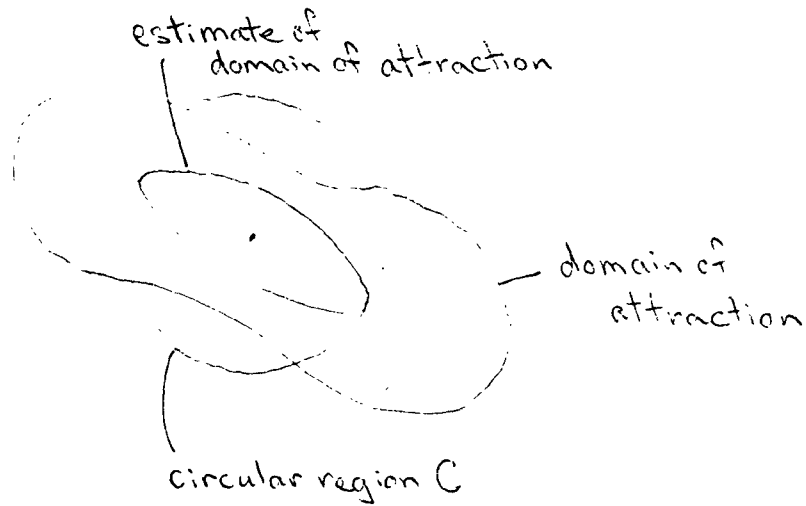 estimate of
domain of attraction
domain of
attraction
circular region C